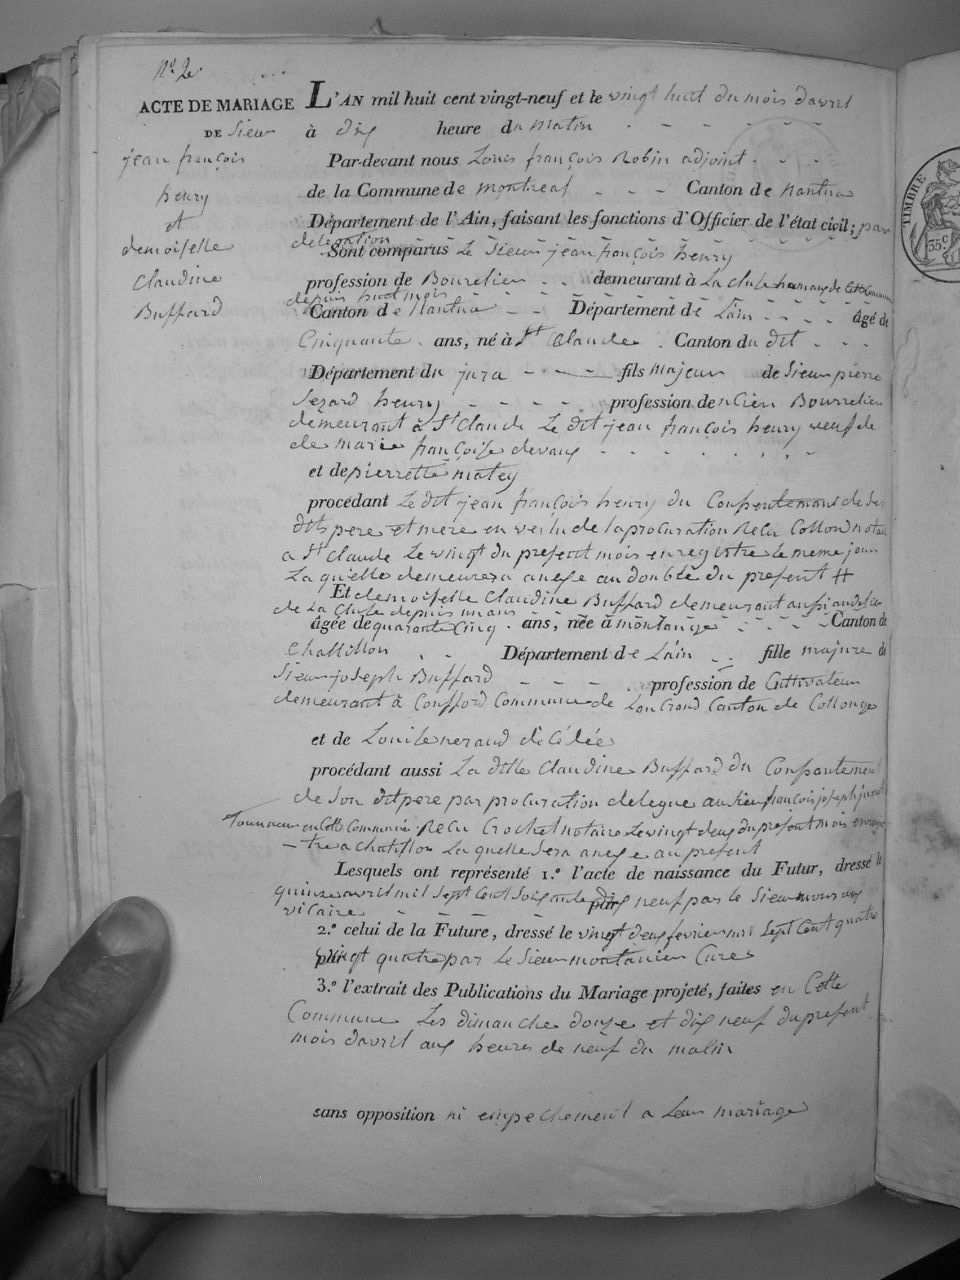 N.° 2.
ACTE DE MARIAGE
DE Sieur
jean françois
henry
et
demoiselle
Claudine
Buffard
L'AN mil huit cent vingt-neuf et le vingt huit du mois davril
à dix heure du matin
Par-devant nous Louis françois Robin adjoint
de la Commune de montreal Canton de nantua
Département de l'Ain, faisant les fonctions d'Officier de l'état civil; par
delegation
Sont comparus Le Sieur jean françois henry
profession de Bourelier demeurant à La cluse hameau de Cette Commune
depuis huit mois
Canton de Nantua Département de Lain âgé de
Cinquante ans, né à St Claude Canton du dit
Département du jura fils majeur de Sieur pierre
henry profession de ncien Bourrelier
demeurant à St Claude Le dit jean françois henry veuf de
de marie françoise devaux
et de pierrette matey
procédant Le dit jean françois henry du Consentement de ses
dits pere et mere en vertu de la procuration Recu Notaire
a St Claude Le vingt du present mois enregistre le meme jour
La quelle demeurera anexe au double du present #
Et demoiselle Claudine Buffard demeurant aussi
de La Cluse depuis un ans
âgée de quarante Cinq ans, née à montange Canton de
Chatillon Département de Lain fille majure de
Sieur joseph Buffard profession de Cultivateur
demeurant à Confford Commune de Canton de Collonge
et de Louise neraud décédée
procédant aussi La dtlle Claudine Buffard du Consantement
de Son dit pere par procuration deleque au sieur françois joseph
Tourneur en Cette Commune Recu Crochet notaire Le vingt deux du present mois enregi
-tre a chatillon La quelle Sera anexe au present
Lesquels ont représenté 1.° l'acte de naissance du Futur, dressé le
quinze avril mil Sept Cent Soixante dix neuf par le Sieur
par
vicaire
2.° celui de la Future, dressé le vingt deux fevrier mil Sept Cent quatre
par vingt quatre par Le Sieur montanier Cure
3.° l'extrait des Publications du Mariage projeté, faites en Cette
Commune Les dimanche douze et dix neuf du present
mois davril aux heures de neuf du matin
sans opposition ni empechement a Leur mariage
TIMBRE
35.c